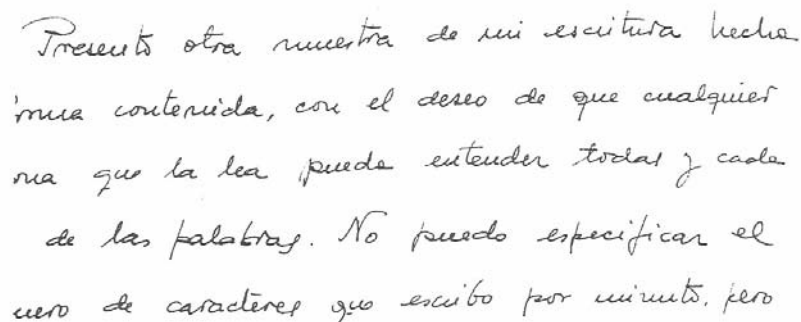 Presento otra muestra de mi escritura hecha
rma contenida, con el deseo de que cualquier
na que la lea pueda entender todas y cada
de las palabras. No puedo especificar el
mero de caracteres que escribo por minuto, pero